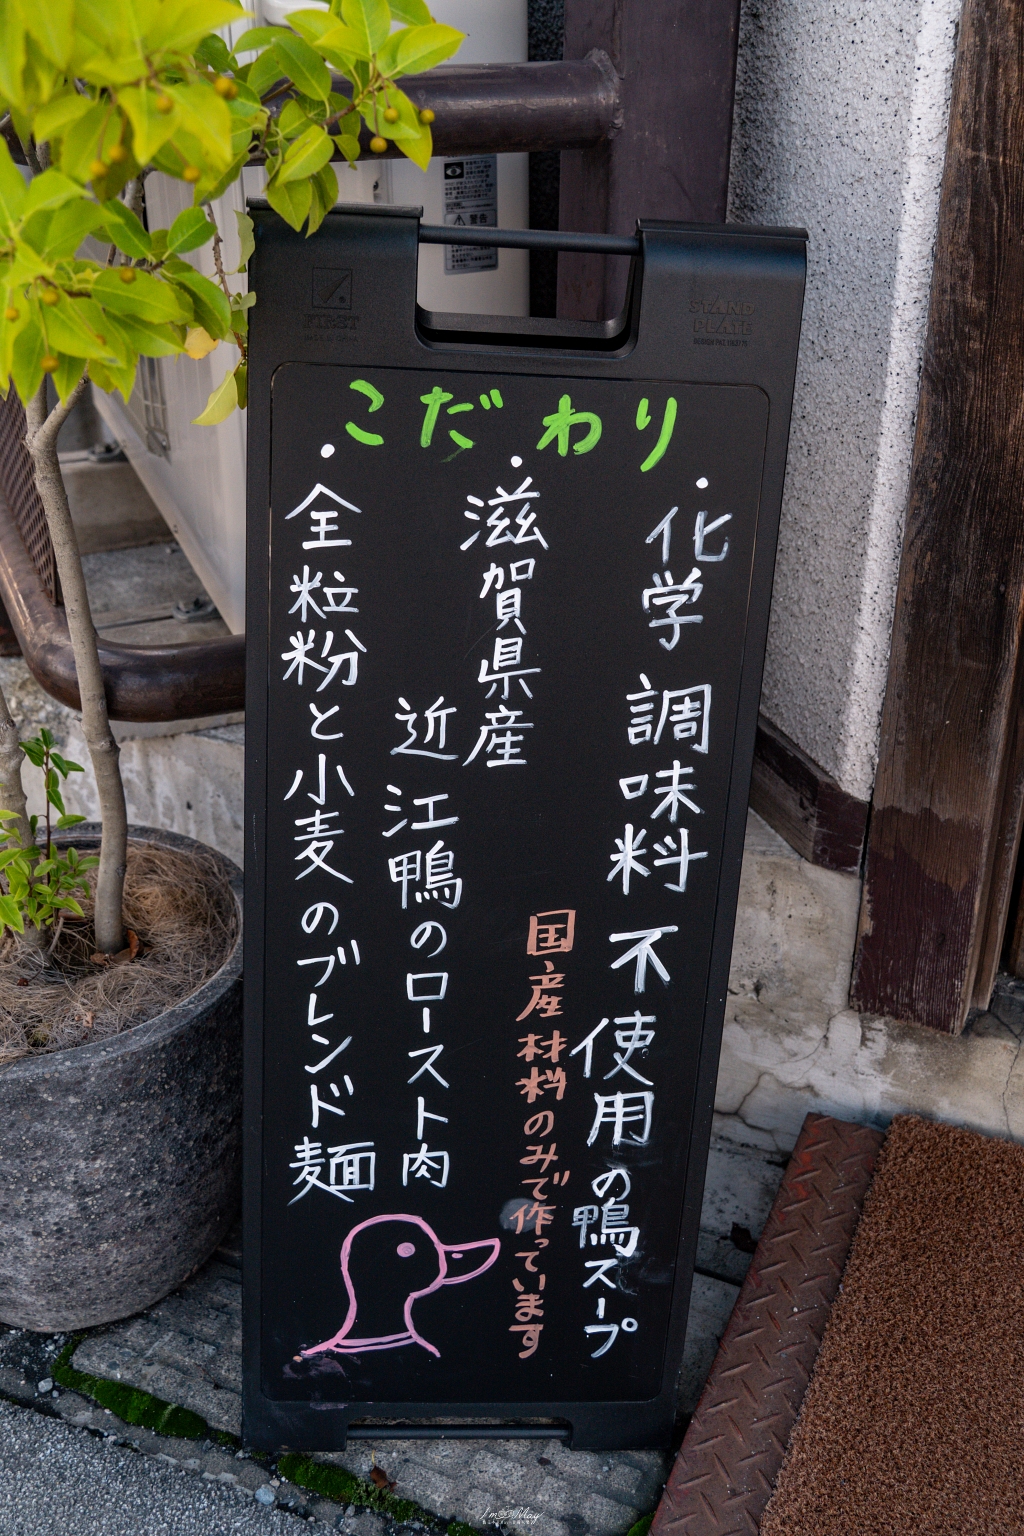 こだわり
・化学調味料不使用の鴨スープ
国産材料のみで作っています
・滋賀県産
近江鴨のロースト肉
・全粒粉と小麦のブレンド麺
FIRST
STAND
PLATE
警告